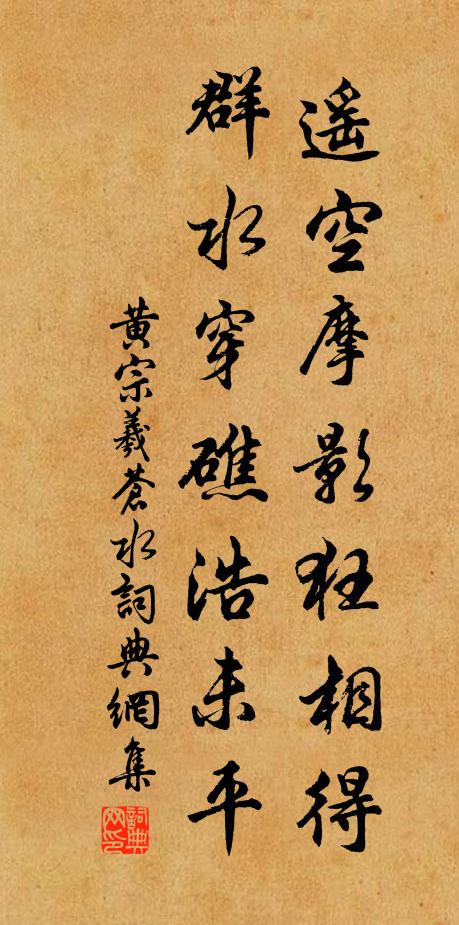 遥空摩影狂相得
群水穿礁浩未平
黄宗羲蒼水詞典網集
詞典网印